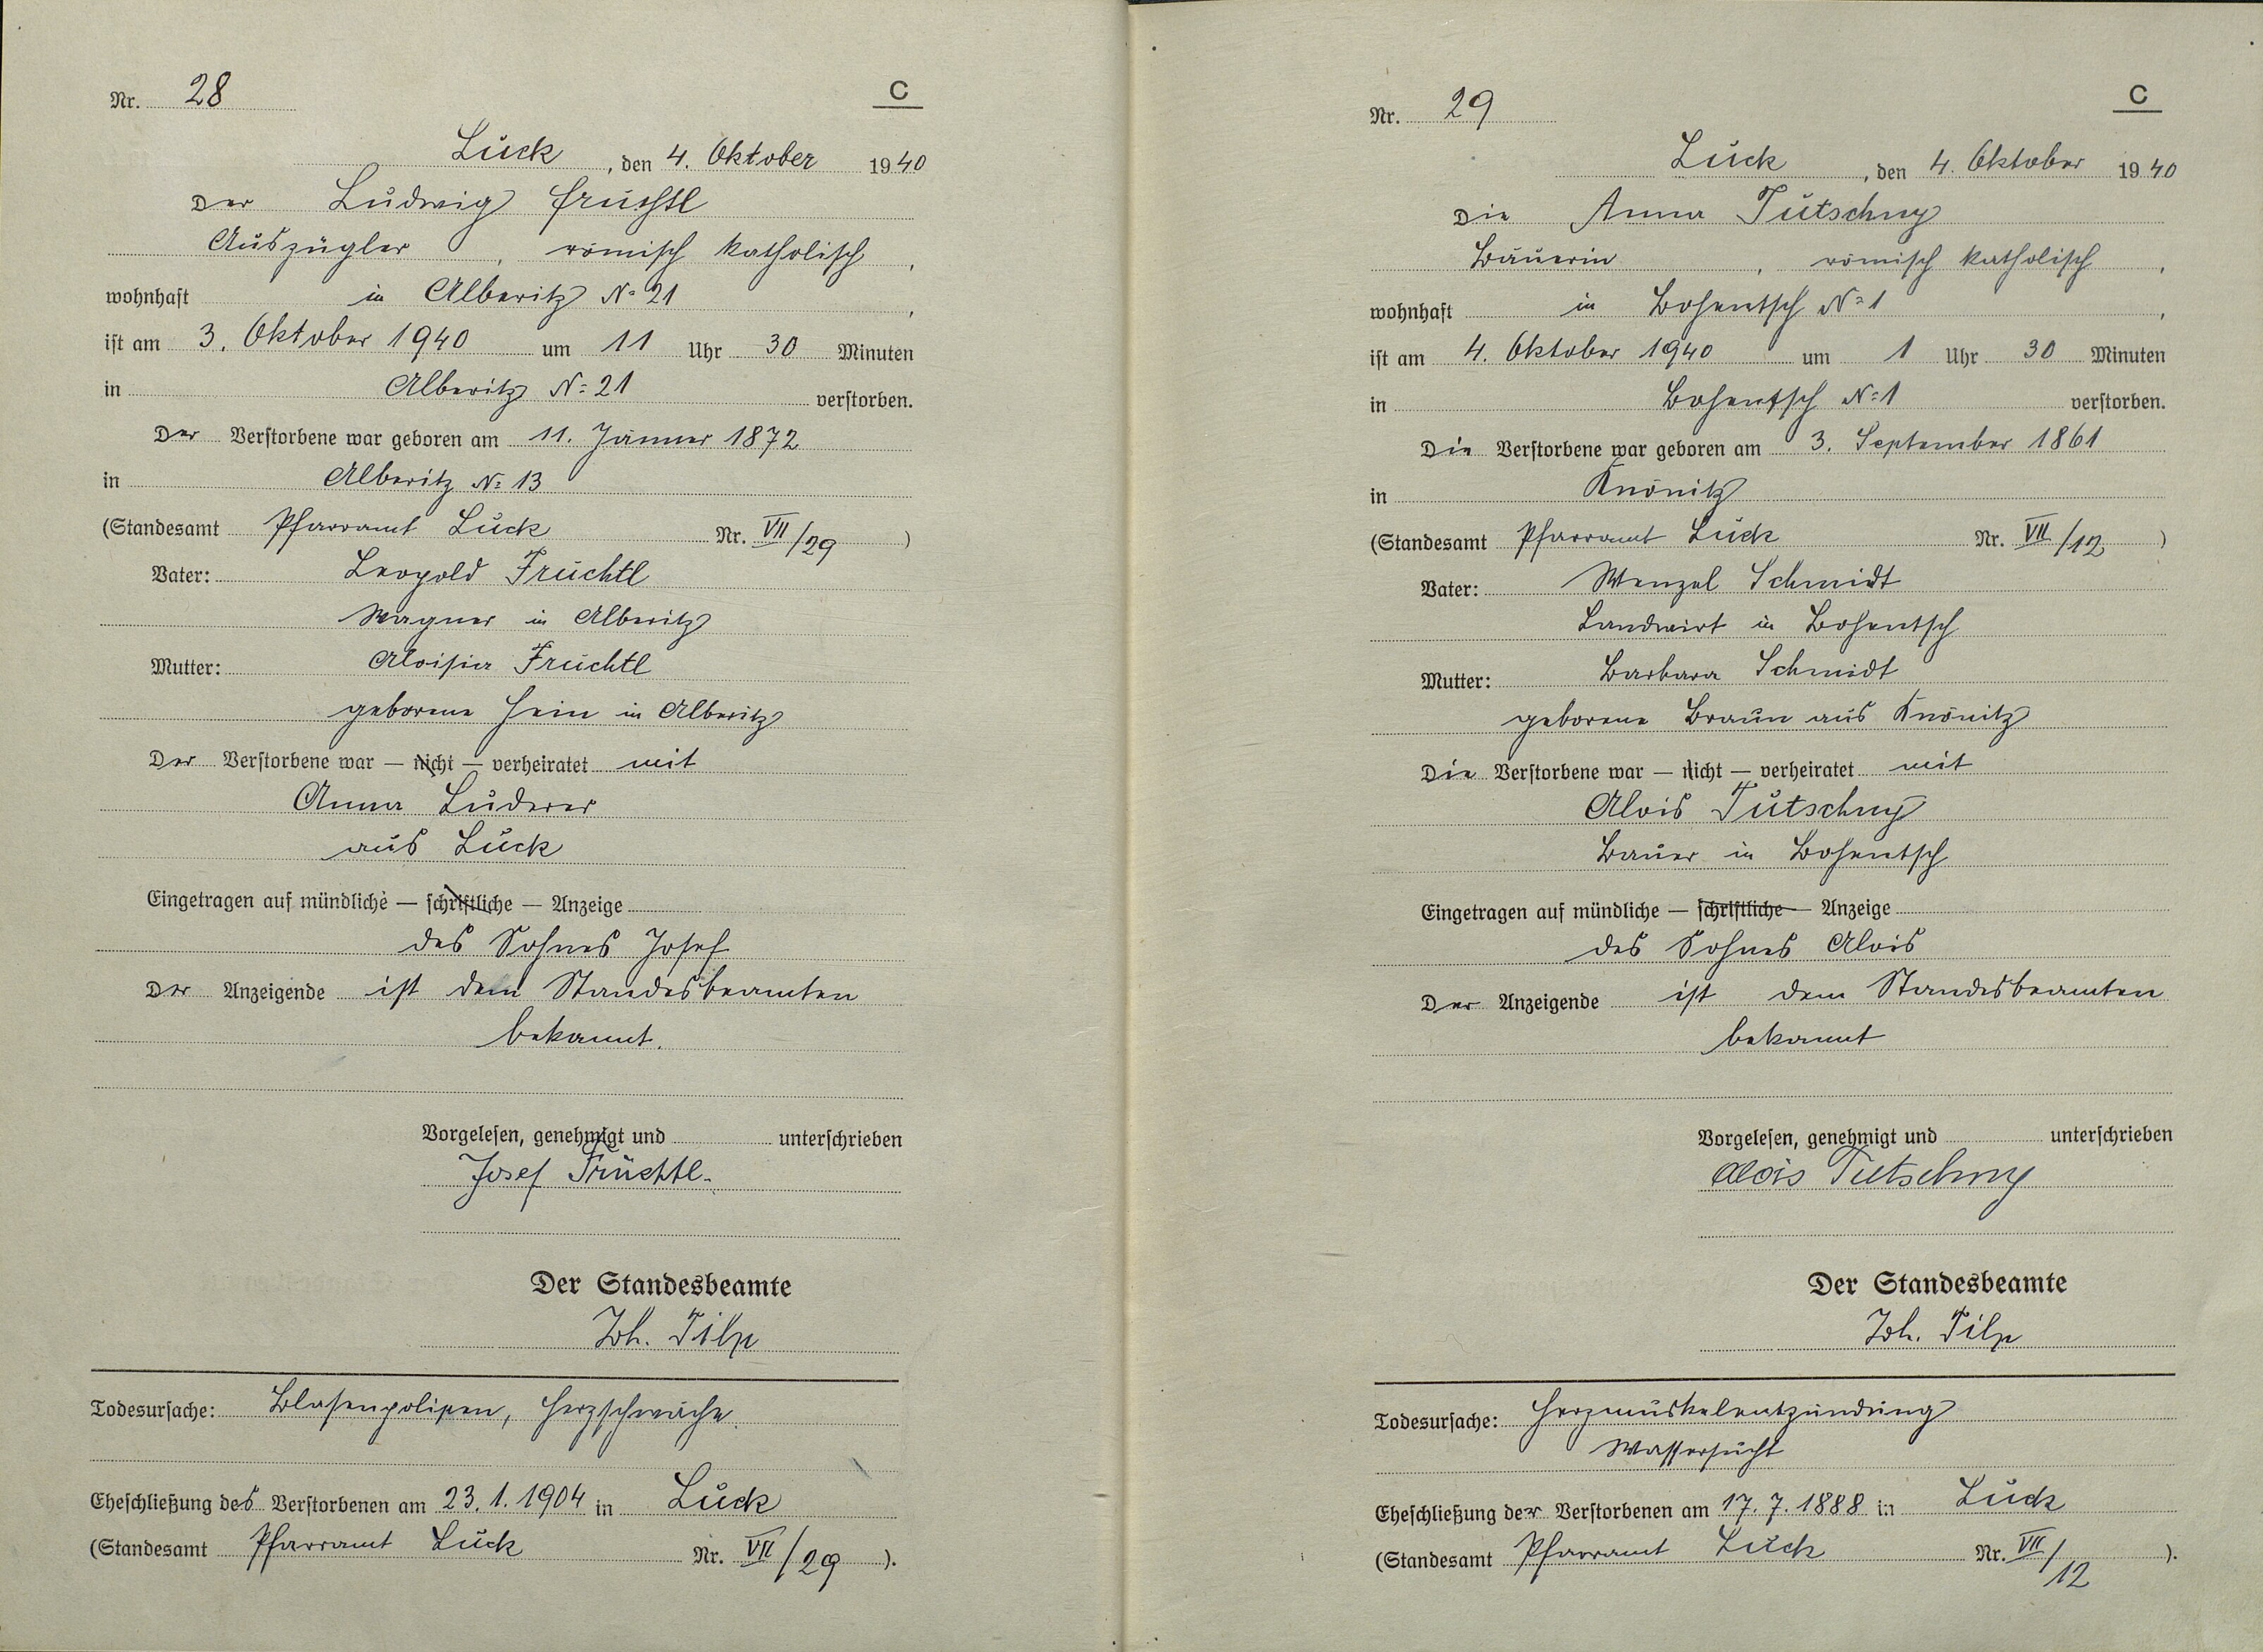 Nr. 28
C
Luck, den 4. Oktober 1940
Der Ludwig Fruchtl
Auszügler, römisch katholisch,
wohnhaft in Alberitz No 21,
ist am 3. Oktober 1940 um 11 Uhr 30 Minuten
in Alberitz No 21 verstorben.
Der Verstorbene war geboren am 11. Jänner 1872
in Alberitz No 13
(Standesamt Pfarramt Luck Nr. VII/29)
Vater: Leopold Früchtl
Wagner in Alberitz
Mutter: Aloisia Früchtl
geborene Hein in Alberitz
Der Verstorbene war — nicht — verheiratet mit
Anna Luderer
aus Luck
Eingetragen auf mündliche — schriftliche — Anzeige
des Sohnes Josef
Der Anzeigende ist dem Standesbeamten
bekannt.
Vorgelesen, genehmigt und unterschrieben
Josef Früchtl.
Der Standesbeamte
Joh. Tilp
Todesursache: Blasenpolipen, Herzschwäche.
Eheschließung des Verstorbenen am 23.1.1904 in Luck
(Standesamt Pfarramt Luck Nr. VII/29).
Nr. 29
C
Luck, den 4. Oktober 1940
Die Anna Tutschny
Bäuerin, römisch katholisch,
wohnhaft in Bohentsch No 1,
ist am 4. Oktober 1940 um 1 Uhr 30 Minuten
in Bohentsch No 1 verstorben.
Die Verstorbene war geboren am 3. September 1861
in Knönitz
(Standesamt Pfarramt Luck Nr. VII/12)
Vater: Wenzel Schmidt
Landwirt in Bohentsch
Mutter: Barbara Schmidt
geborene Braun aus Knönitz
Die Verstorbene war — nicht — verheiratet mit
Alois Tutschny
Bauer in Bohentsch
Eingetragen auf mündliche — schriftliche — Anzeige
des Sohnes Alois
Der Anzeigende ist dem Standesbeamten
bekannt
Vorgelesen, genehmigt und unterschrieben
Alois Tutschny
Der Standesbeamte
Joh. Tilp
Todesursache: Herzmuskelentzündung
Wassersucht
Eheschließung der Verstorbenen am 17.7.1888 in Luck
(Standesamt Pfarramt Luck Nr. VII/12).